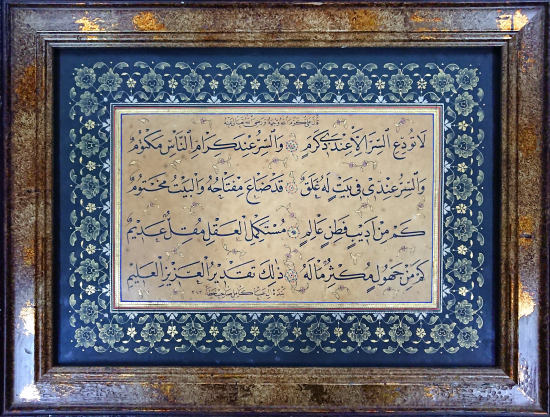 لَا تُودِعِ السِّرَّ إِلَّا عِنْدَ ذِي كَرَمٍ وَالسِّرُّ عِنْدَ كِرَامِ النَّاسِ مَكْتُومٌ
وَالسِّرُّ عِنْدِي فِي بَيْتٍ لَهُ غَلَقٌ قَدْ ضَاعَ مِفْتَاحُهُ وَالْبَيْتُ مَخْتُومٌ
كَمْ مِنْ أَدِيبٍ فَطِنٍ عَالِمٍ مُسْتَكْمِلِ الْعَقْلِ مُقِلٌّ عَدِيمٌ
كَمْ مِنْ جَهُولٍ مُكْثِرٌ مَالُهُ ذٰلِكَ تَقْدِيرُ الْعَزِيزِ الْعَلِيمِ